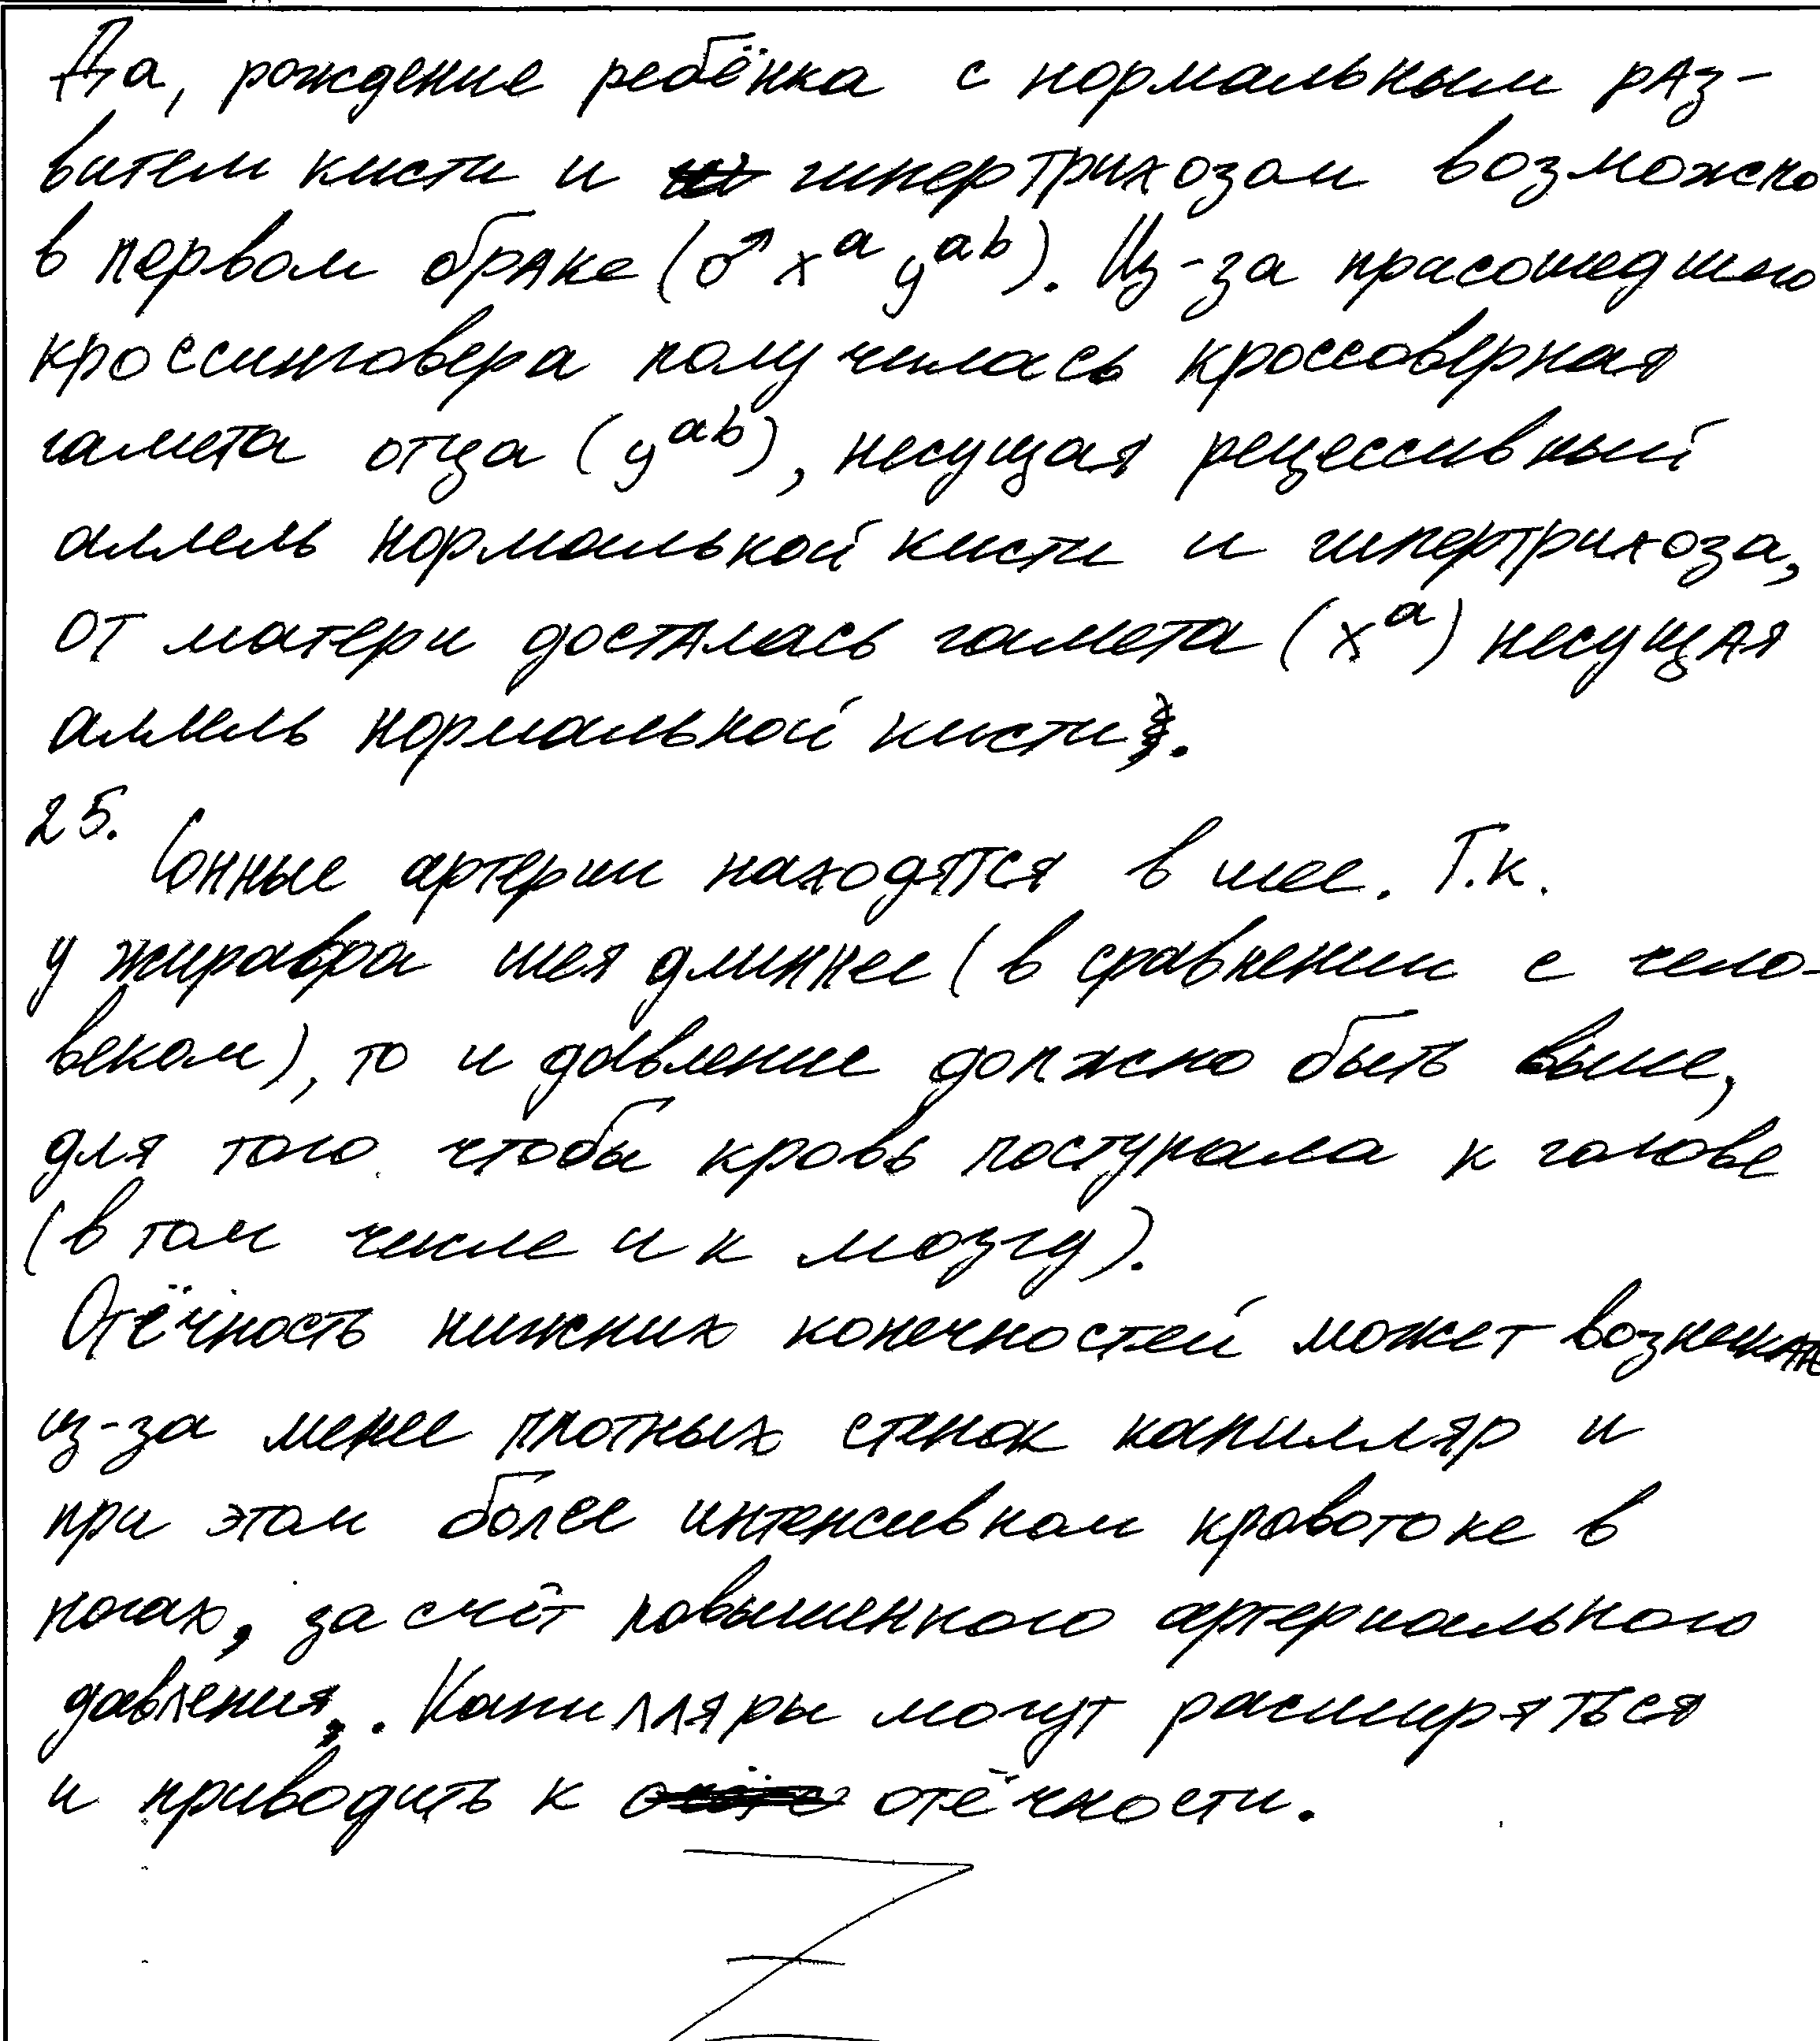 Да, рождение ребёнка с нормальным раз-
витем кисти и гипертрихозом возможно
в первом браке (♂ xᵃ yᵃᵇ). Из-за прасошедшего
кроссинговера получилась кроссоверная
гамета отца (yᵃᵇ), несущая рецессивный
аллель нормальной кисти и гипертрихоза,
от матери досталась гамета (xᵃ) несущая
аллель нормальной кисти.
25.
Сонные артерии находятся в шее. Т.к.
у жирафа шея длиннее (в сравнении с чело-
веком), то и давление должно быть выше,
для того чтобы кровь поступала к голове
(в том числе и к мозгу).
Отёчность нижних конечностей может возникать
из-за менее плотных стенок капилляр и
при этом более интенсивном кровотоке в
ногах, за счёт повышенного артериального
давления. Капилляры могут расширяться
и приводить к отёчности.